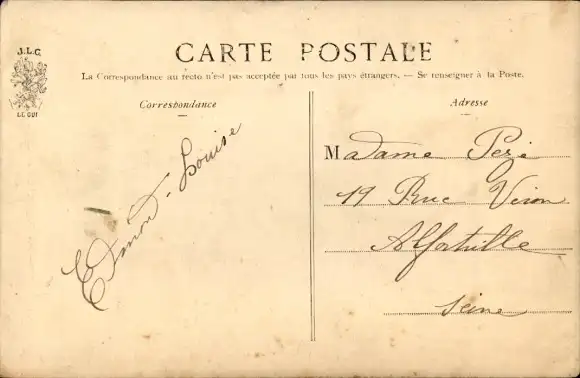 J.L.C.
LE GUI
CARTE POSTALE
La Correspondance au recto n'est pas acceptée par tous les pays étrangers. — Se renseigner à la Poste.
Correspondance
Adresse
Edmond - Louise
Madame
19 Rue Véron
Alfortville
Seine